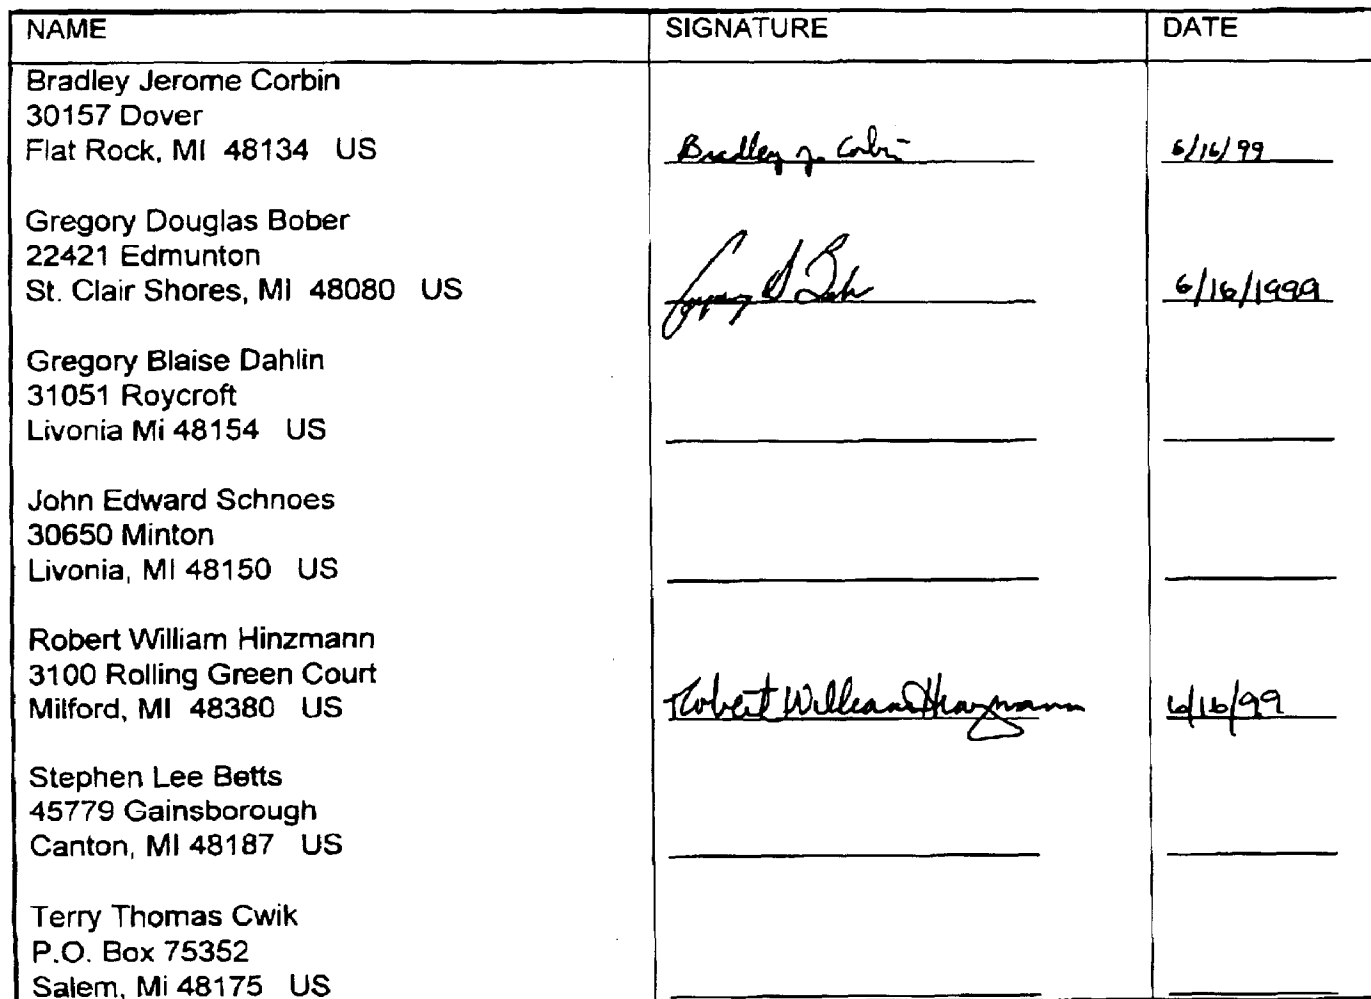 NAME SIGNATURE DATE
Bradley Jerome Corbin
30157 Dover
Flat Rock, MI 48134 US Bradley J. Corbin 6/16/99
Gregory Douglas Bober
22421 Edmunton
St. Clair Shores, MI 48080 US 6/16/1999
Gregory Blaise Dahlin
31051 Roycroft
Livonia Mi 48154 US
John Edward Schnoes
30650 Minton
Livonia, MI 48150 US
Robert William Hinzmann
3100 Rolling Green Court
Milford, MI 48380 US Robert William Hinzmann 6/16/99
Stephen Lee Betts
45779 Gainsborough
Canton, MI 48187 US
Terry Thomas Cwik
P.O. Box 75352
Salem, Mi 48175 US